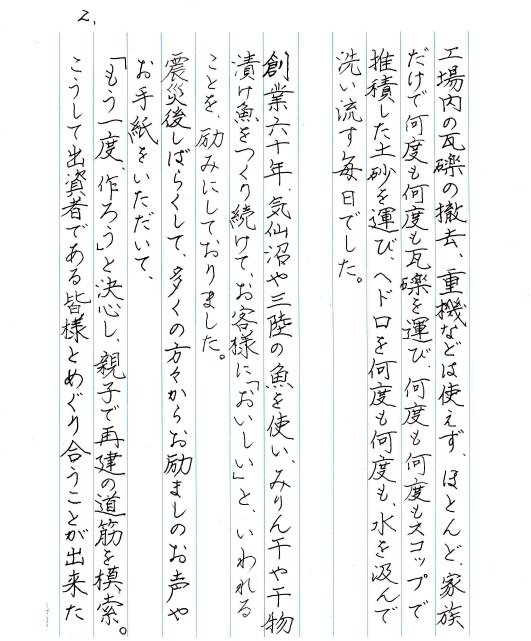 工場内の瓦礫の撤去、重機などは使えず、ほとんど、家族
だけで何度も何度も瓦礫を運び、何度も何度もスコップで
推積した土砂を運び、ヘドロを何度も何度も、水を汲んで
洗い流す毎日でした。
創業六十年、気仙沼や三陸の魚を使い、みりん干や干物
漬け魚をつくり続けて、お客様に「おいしい」と、いわれる
ことを、励みにしておりました。
震災後しばらくして、多くの方々からお励ましのお声や
お手紙をいただいて、
「もう一度、作ろう」と決心し、親子で再建の道筋を模索。
こうして出資者である皆様とめぐり合うことが出来た
2.